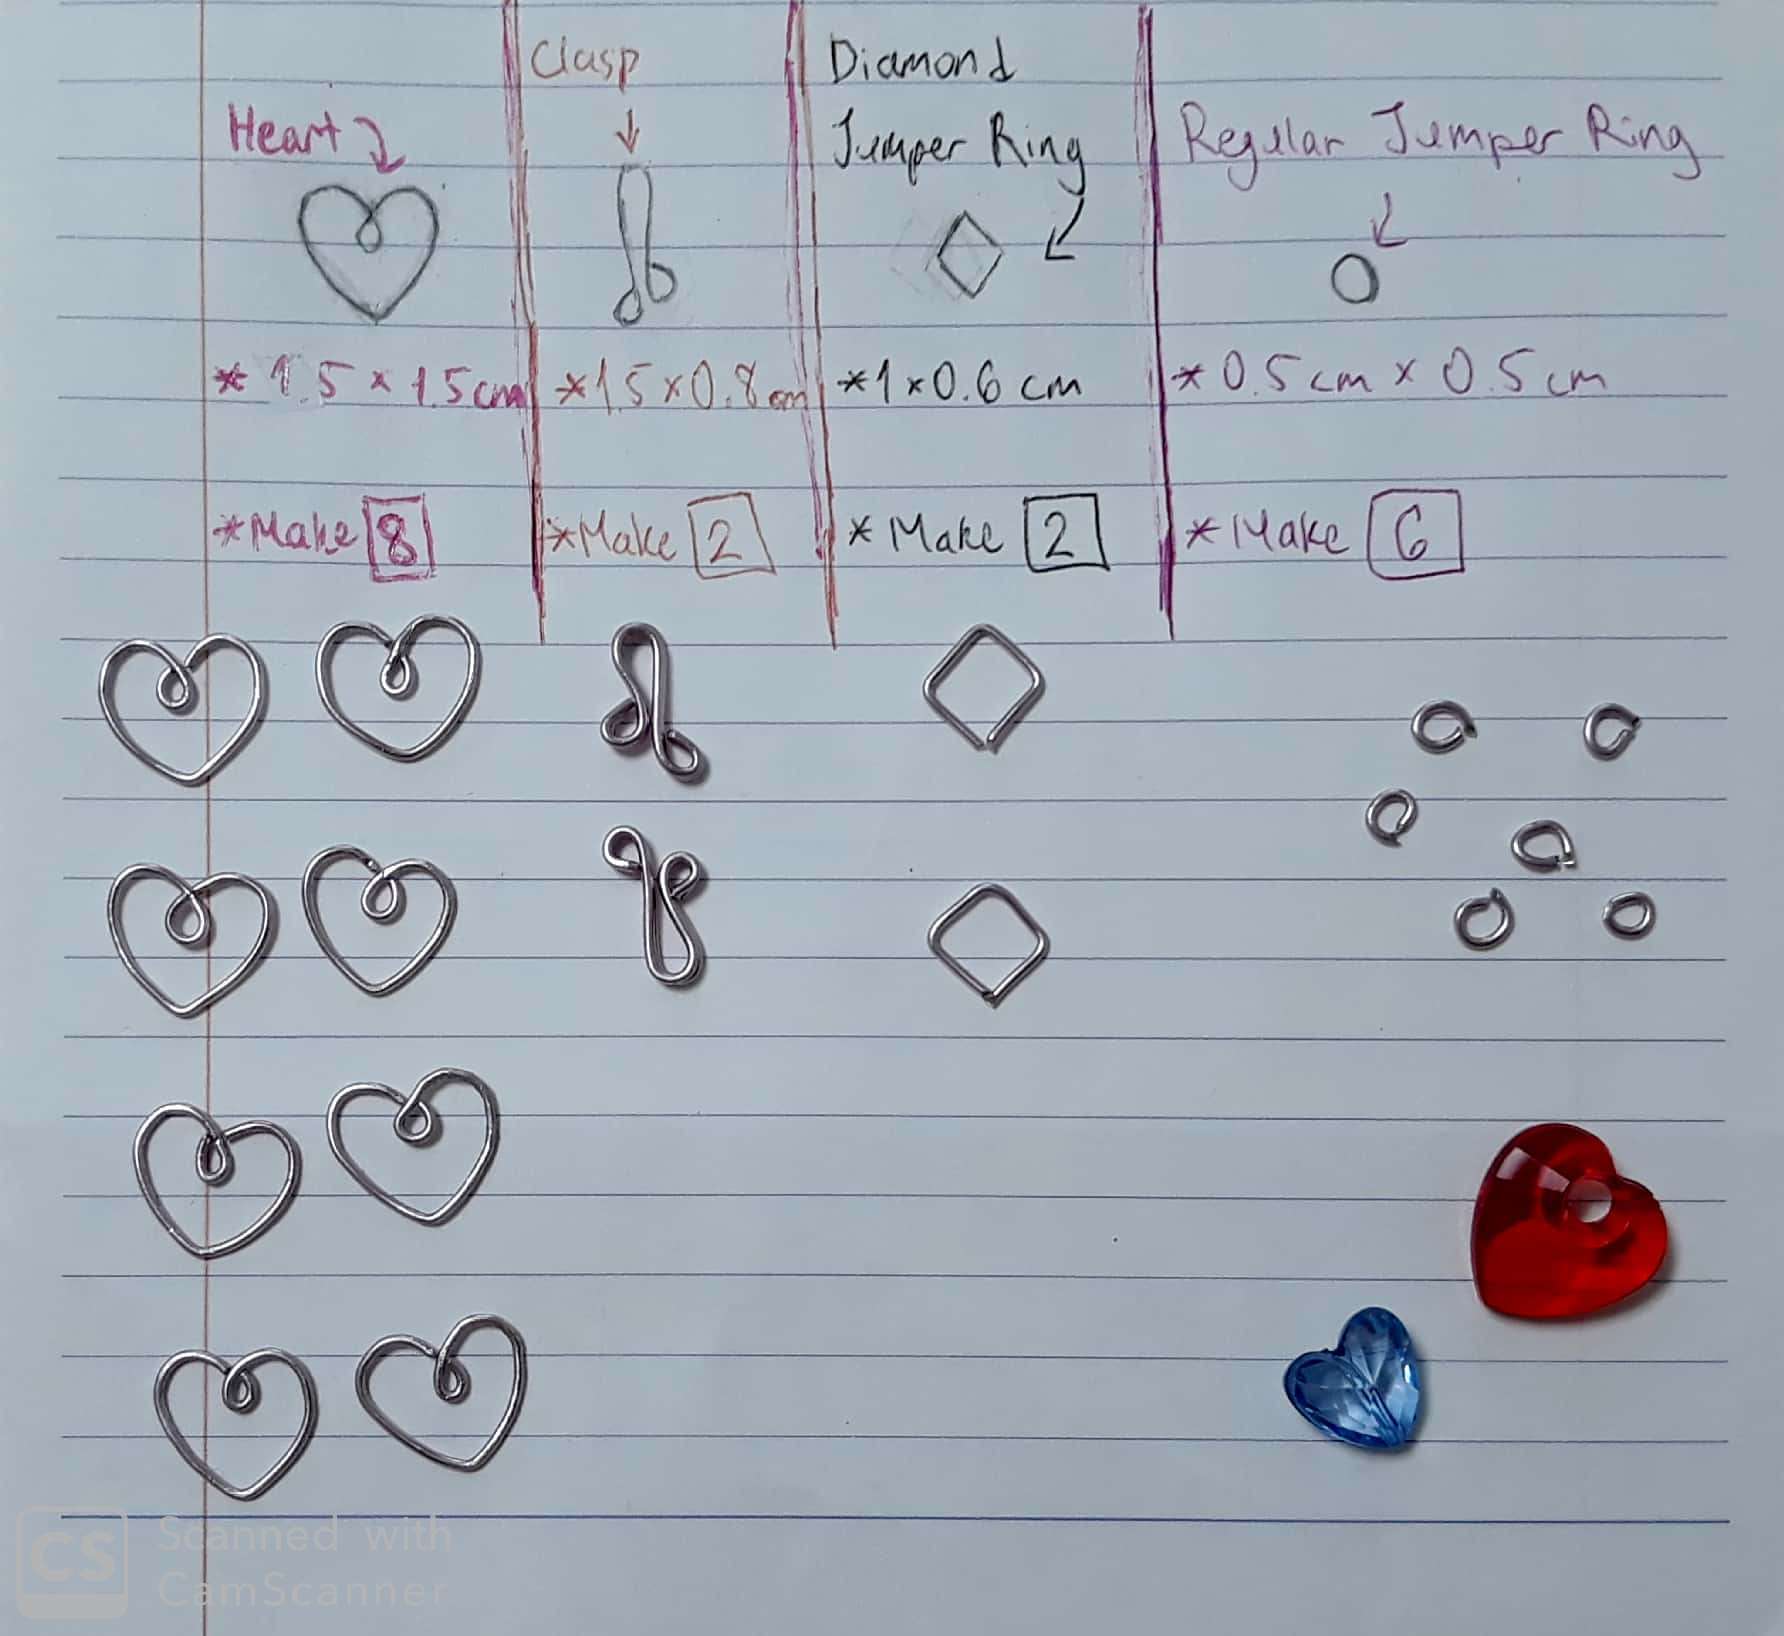 Heart
* 1.5 x 1.5 cm
* Make 8
Clasp
* 1.5 x 0.8 cm
* Make 2
Diamond
Jumper Ring
* 1 x 0.6 cm
* Make 2
Regular Jumper Ring
* 0.5 cm x 0.5 cm
* Make 6
CS
Scanned with
CamScanner